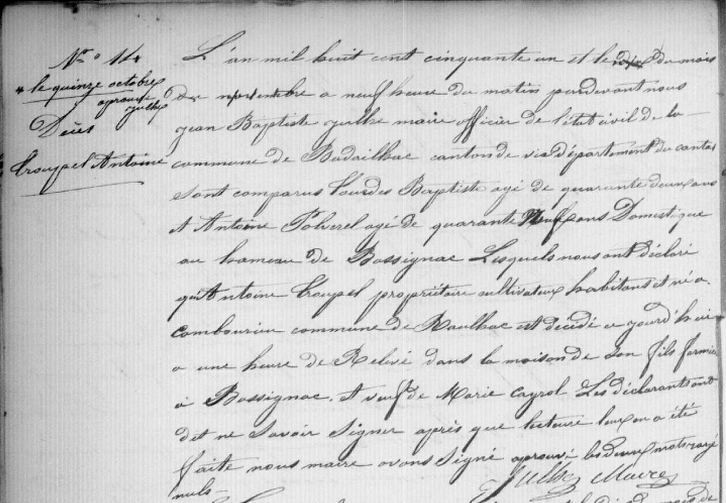 N° 14
* le quinze octobre
aprouvé Julhe
Décès
Croupel Antoine
L'an mil huit cent cinquante un et le du mois
de novembre a neuf heure du matin pardevant nous
jean Baptiste Julhe maire officier de l'état civil de la
commune de Badailhac canton de vic département du cantal
Sont comparus Lourdes Baptiste agé de quarante deux ans
et Antoine Polverel agé de quarante neuf ans Domestique
au hameau de Bassignac Lesquels nous ont déclaré
qu'Antoine Croupel propriétaire cultivateur habitant et né a
combourieu commune de Raulhac est décédé ce jourd'hui
a une heure de Relevé dans la maison de Son fils fermier
à Bassignac. et veuf de Marie Cayrol Les déclarants ont
dit ne Savoir Signer après que lecture leur en a été
faite nous maire avons Signé aprouvé les deux mots rayé
nuls- Julhe Maire